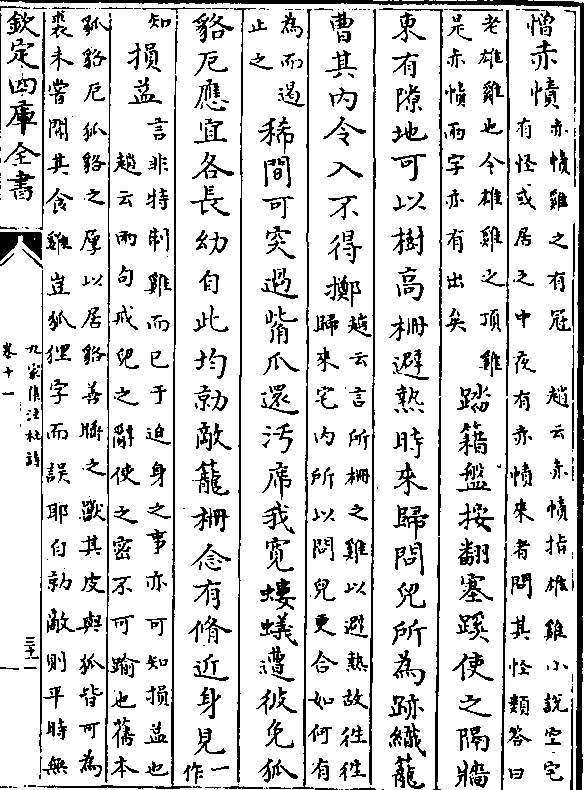 憎赤幘
赤幘雞之有冠　趙云赤幘指雄雞小說空宅
有怪或居之中夜有赤幘來者問其怪類答曰
老雄雞也今雄雞之頂雞
是亦幘兩字亦有出矣
踏籍盤按翻塞蹊使之隔牆
東有隙地可以樹高柵避熱時來歸問兒所為跡織籠
曹其內令入不得擲
趙云言所柵之雞以避熱故往往
歸來宅內所以問兒更合如何有
為而遏
止之
稀間可突過觜爪還汚席我寛螻蟻遭彼免狐
貉厄應宜各長幼自此均勍敵籠柵念有脩近身見
一作
知
損益
言非特制雞而已于迫身之事亦可知損益也
趙云兩句戒兒之辭使之密不可踰也舊本
狐貉厄狐貉之厚以居貉善睡之獸其皮與狐皆可為
裘未嘗聞其食雞豈狐狸字而誤耶自勍敵則平時無
欽定四庫全書
九家集注杜詩
卷十一